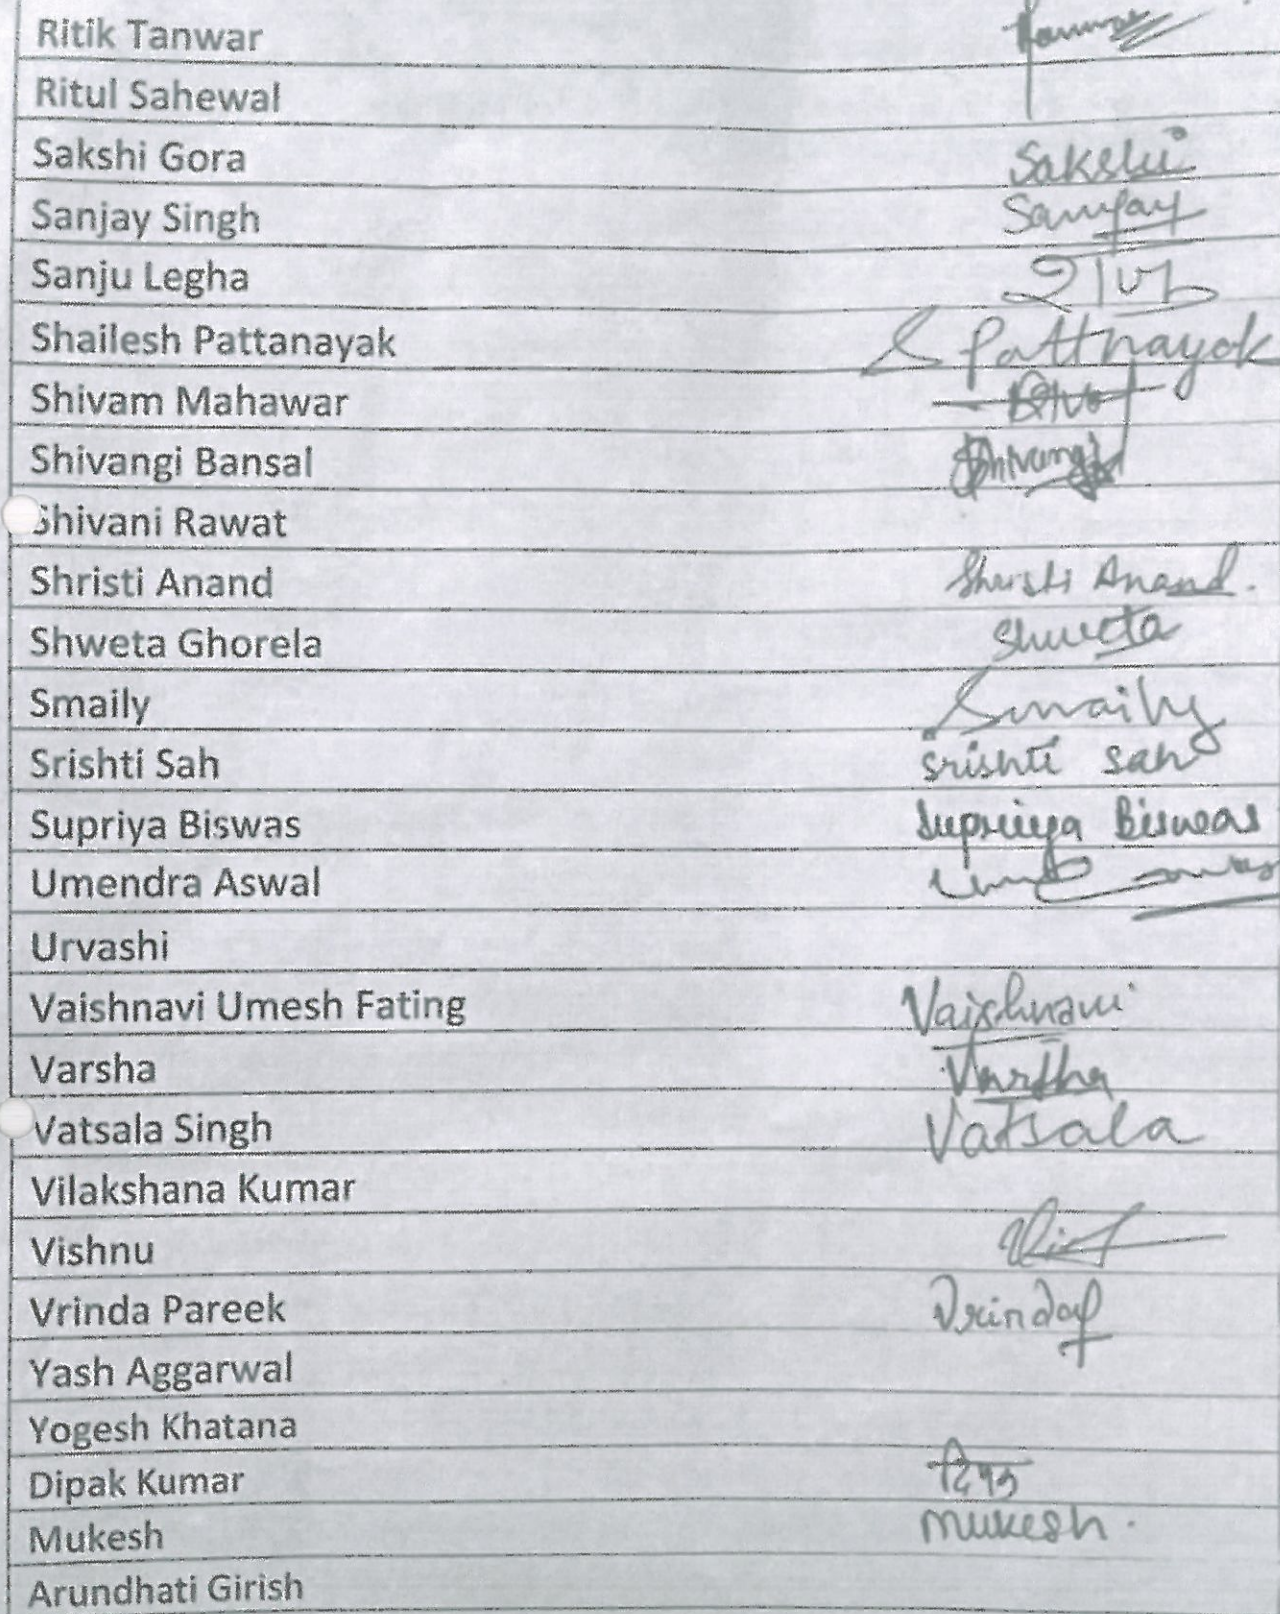 Ritik Tanwar
Ritul Sahewal
Sakshi Gora Sakshi
Sanjay Singh Sanjay
Sanju Legha
Shailesh Pattanayak S Pattnayak
Shivam Mahawar
Shivangi Bansal Shivangi
Shivani Rawat
Shristi Anand Shristi Anand.
Shweta Ghorela Shweta
Smaily Smaily
Srishti Sah Srishti Sah
Supriya Biswas Supriya Biswas
Umendra Aswal
Urvashi
Vaishnavi Umesh Fating Vaishnavi
Varsha Varsha
Vatsala Singh Vatsala
Vilakshana Kumar
Vishnu
Vrinda Pareek VrindaP
Yash Aggarwal
Yogesh Khatana
Dipak Kumar
Mukesh Mukesh.
Arundhati Girish